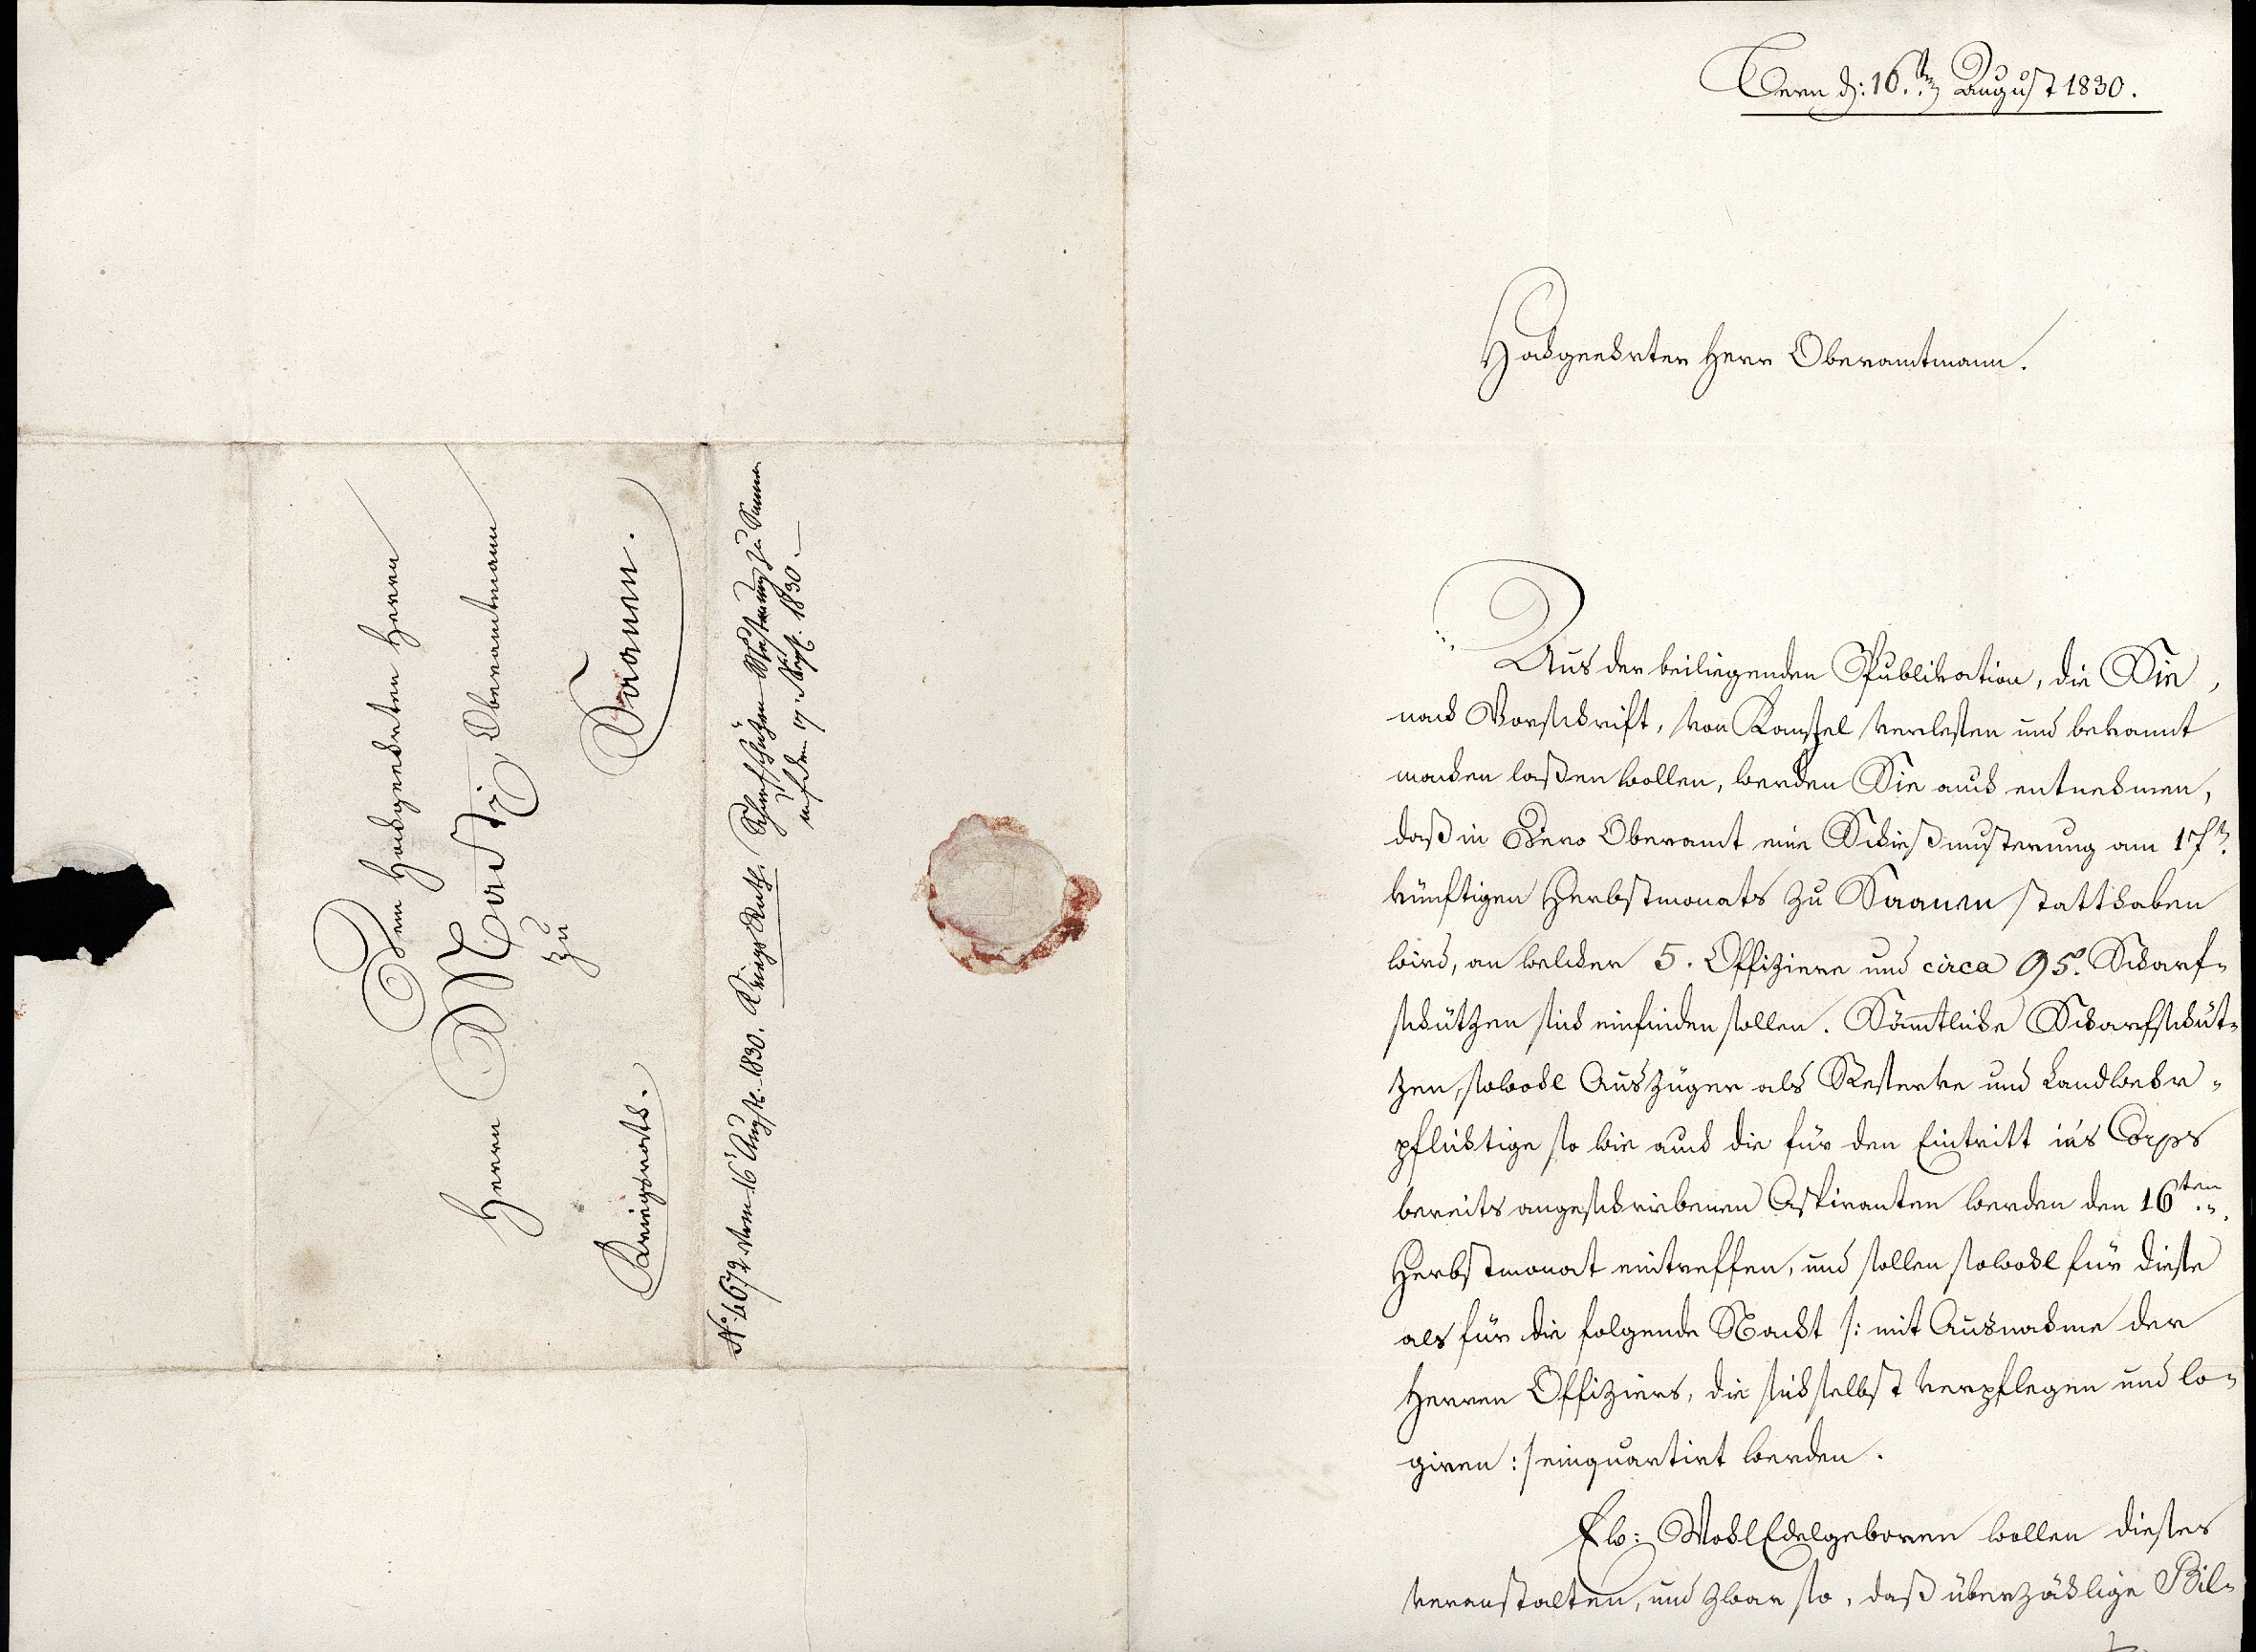 Dem Hochgeehrten Herrn
Herrn Oberamtmann
zu
Saanen.
Kriegsrath.
No. 4672 vom 16. Augst. 1830. Kriegs Rath. Scharfschüzen-Musterung zu Saanen
auf den 17. Sept. 1830.—
Bern d: 16.ten August 1830.
Hochgeehrter Herr Oberamtmann.
Aus der beiliegenden Publikation, die Sie,
nach Vorschrift, von Kanzel verlesen und bekannt
machen laßen wollen, werden Sie auch entnehmen,
daß in Dero Oberamt eine Schießmusterung am 17.n
künftigen Herbstmonats zu Saanen statthaben
wird, an welcher 5. Offiziere und circa 95. Scharf-
schützen sich einfinden sollen. Sämtliche Scharfschüt-
zen, sowohl Auszüger als Reserve und Landwehr-
pflichtige so wie auch die für den Eintritt in's Corps
bereits angeschriebenen Aspiranten werden den 16ten.
Herbstmonat eintreffen, und sollen sowohl für diese
als für die folgende Nacht /: mit Ausnahme der
Herren Offiziers, die sich selbst verpflegen und lo-
giren :/ einquartirt werden.
Ew: WohlEdelgeboren wollen dieses
veranstalten, und zwar so, daß überzählige Bil-